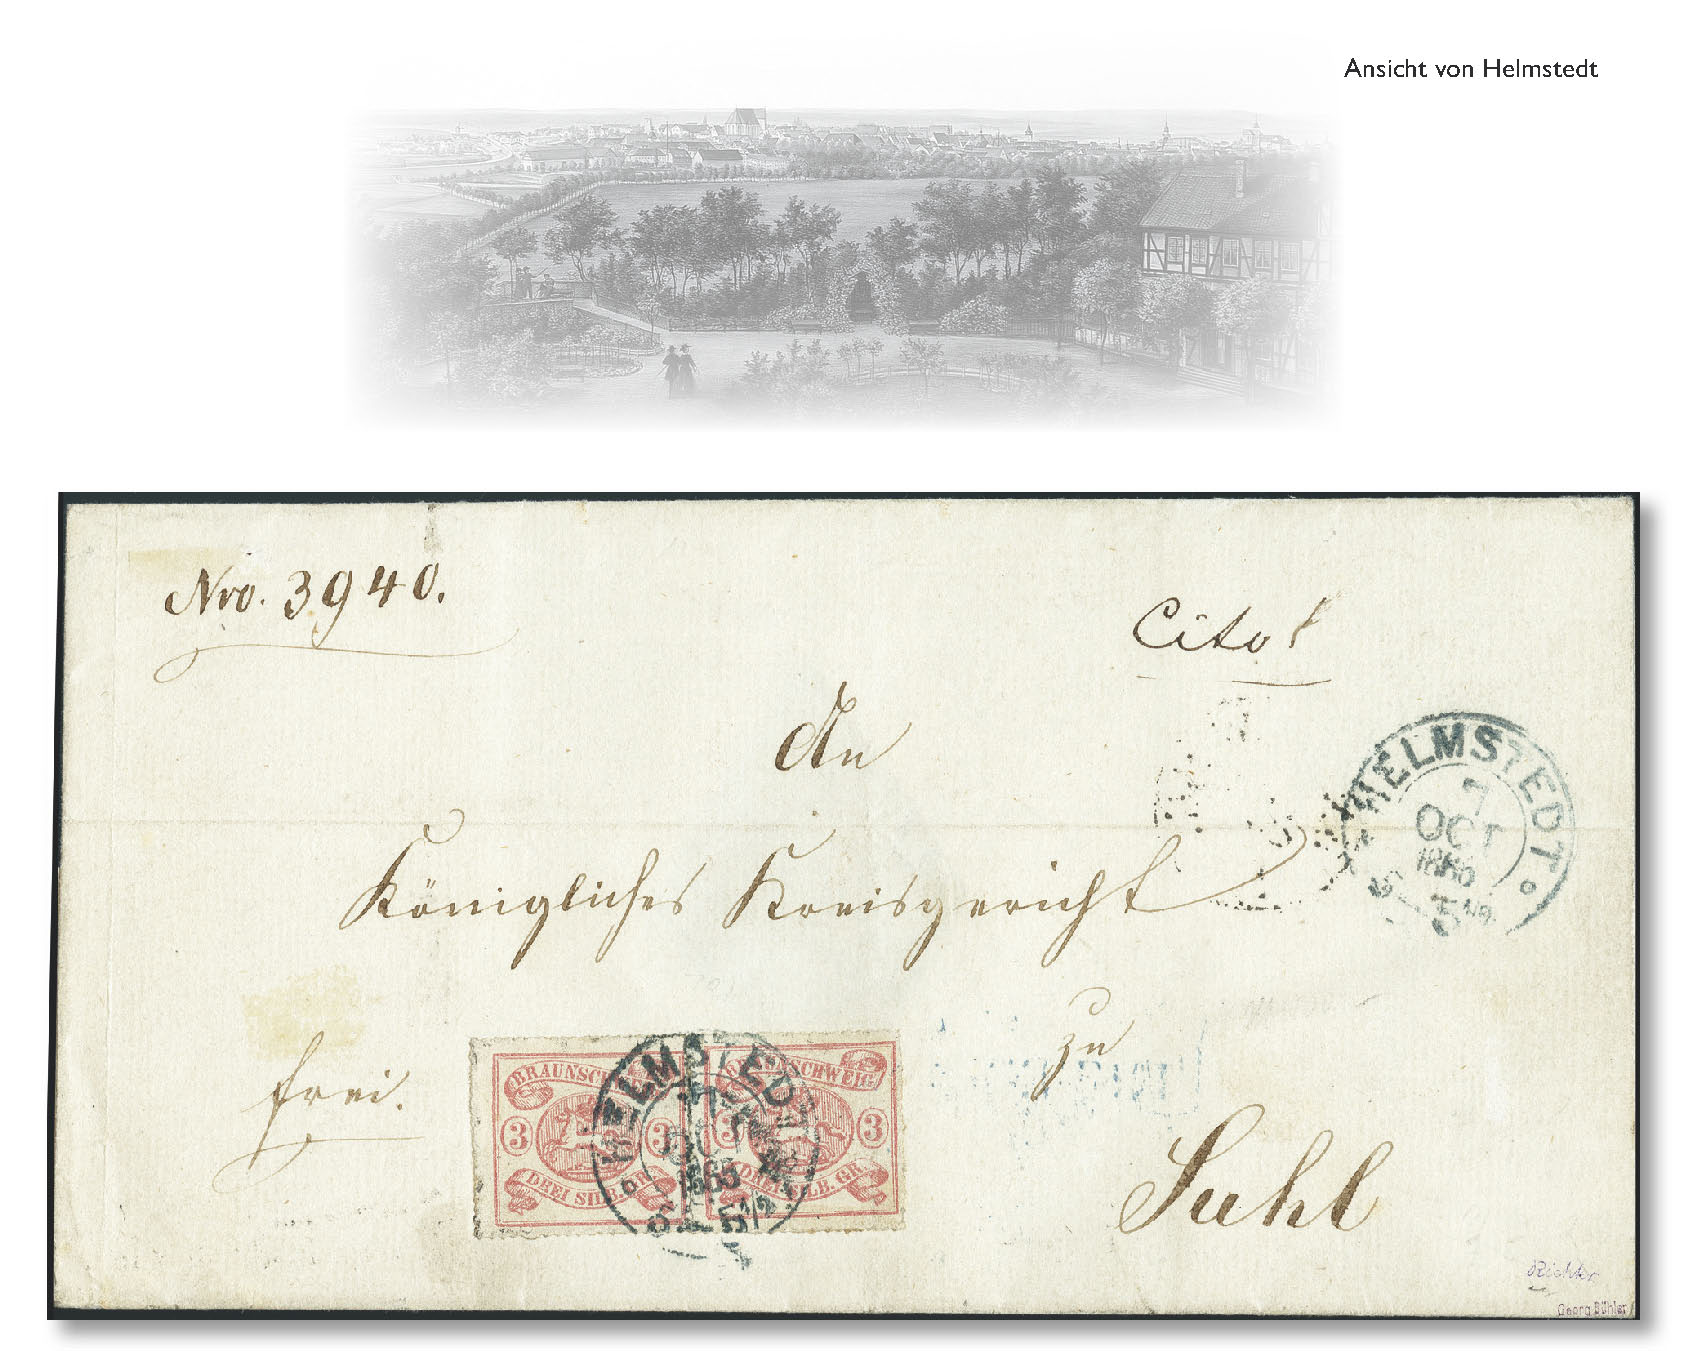 Ansicht von Helmstedt
Nro. 3940.
Cito!
An
Königliches Kreisgericht
zu
Suhl
frei.
HELMSTEDT
7
OCT
1865
BRAUNSCHWEIG
3 3
DREI SILB. GR.
BRAUNSCHWEIG
3
DREI SILB. GR.
HELMSTEDT
7
OCT
1865
Richter
Georg Bühler